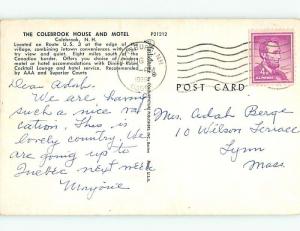 THE COLEBROOK HOUSE AND MOTEL
Colebrook, N. H.
P21212
Located on Route U. S. 3 at the edge of the
village, combining intown conveniences with
try view and quiet. Eight miles south of the
Canadian border. Offers you choice of modern
motel or hotel accommodations with Dining Room
Cocktail Lounge and hotel service. Recommended
by AAA and Superior Courts
Dear Adah.
We are having
such a nice va
cation. This is
lovely country. We
are going up to
Quebec next week
Marjorie
POST CARD
4¢
Mrs. Adah Berge
10 Wilson Terrace
Lynn
Mass.